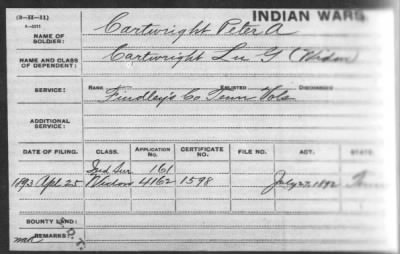 (3-22-21)
INDIAN WARS
NAME OF SOLDIER: Cartwright Peter A
NAME AND CLASS OF DEPENDENT: Cartwright Lu G (Widow)
SERVICE: RANK ENLISTED DISCHARGED
Findley's Co Tenn Vols
ADDITIONAL SERVICE:
DATE OF FILING. CLASS. APPLICATION No. CERTIFICATE No. FILE NO. ACT. STATE.
Ind Sur 161
1893 Apl 25 Widow 4162 1598 July 27, 1892 Tenn
BOUNTY LAND:
REMARKS: